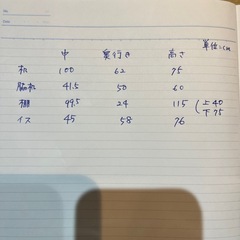 単位:cm
巾 奥行き 高さ
机 100 62 75
脇机 41.5 50 60
棚 99.5 24 115 (上40
下75
イス 45 58 76